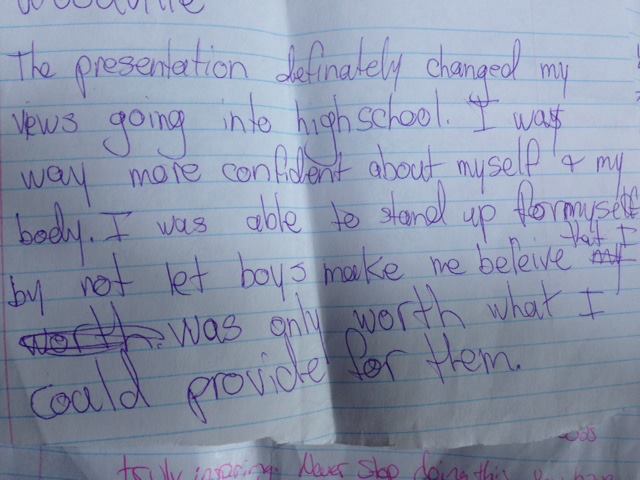 The presentation definately changed my
views going into highschool. I was
way more confident about myself & my
body. I was able to stand up for myself
by not let boys make me beleive that I
was only worth what I
could provide for them.
truly inspiring. Never stop doing this